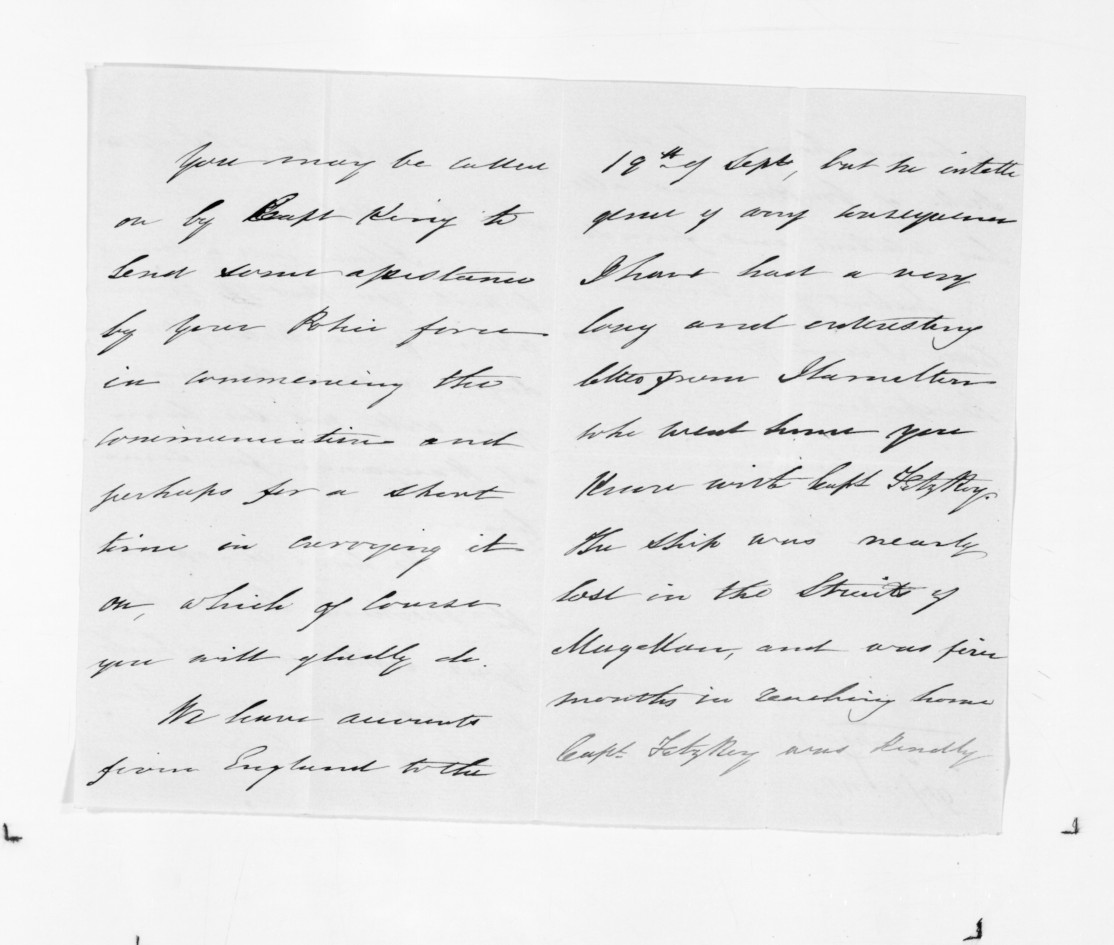 You may be called
on by Capt King to
send some assistance
by your Police force
in commencing the
communication and
perhaps for a short
time in carrying it
on, which of course
you will gladly do.
We have accounts
from England to the
19th of Sept, but no intelli
gence of any consequence
I have had a very
long and interesting
letter from Hamilton
who went home you
know with Capt FitzRoy.
The ship was nearly
lost in the Straits of
Magellan, and was five
months in reaching home
Capt. FitzRoy was kindly